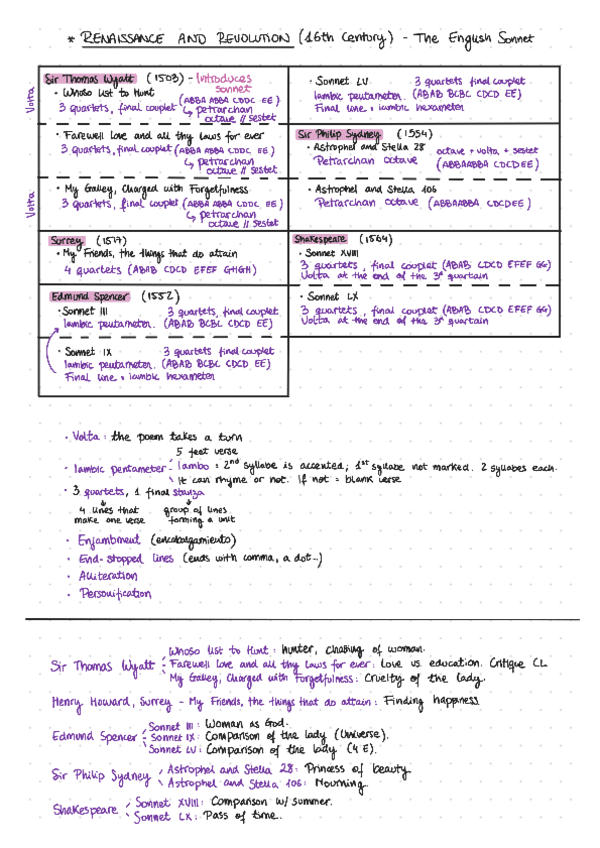 * RENAISSANCE AND REVOLUTION (16th Century) - The English Sonnet
Sir Thomas Wyatt (1503) - Introduces sonnet
Volta
• Whoso list to Hunt
3 quartets, final couplet (ABBA ABBA CDDC EE)
↳ petrarchan
octave // sestet
• Farewell love and all thy laws for ever
3 quartets, final couplet (ABBA ABBA CDDC EE)
↳ petrarchan
octave // sestet
Volta
• My Galley, Charged with Forgetfulness
3 quartets, final couplet (ABBA ABBA CDDC EE)
↳ petrarchan
octave // sestet
Surrey (1517)
• My Friends, the things that do attain
4 quartets (ABAB CDCD EFEF GHGH)
Edmund Spencer (1552)
• Sonnet III 3 quartets, final couplet
Iambic pentameter. (ABAB BCBC CDCD EE)
• Sonnet IX 3 quartets final couplet
Iambic pentameter. (ABAB BCBC CDCD EE)
Final line = iambic hexameter
• Sonnet LV 3 quartets final couplet
Iambic pentameter. (ABAB BCBC CDCD EE)
Final line = iambic hexameter
Sir Philip Sydney (1554)
• Astrophel and Stella 28 octave + volta + sestet
Petrarchan octave (ABBAABBA CDCDEE)
• Astrophel and Stella 106
Petrarchan octave (ABBAABBA CDCDEE)
Shakespeare (1564)
• Sonnet XVIII
3 quartets, final couplet (ABAB CDCD EFEF GG)
Volta at the end of the 3r quartain
• Sonnet LX
3 quartets, final couplet (ABAB CDCD EFEF GG)
Volta at the end of the 3r quartain
• Volta: the poem takes a turn
5 feet verse
• Iambic pentameter - Iambo = 2nd syllabe is accented; 1st syllabe not marked. 2 syllabes each.
It can rhyme or not. If not = blank verse
• 3 quartets, 1 final stanza
4 lines that make one verse
group of lines forming a unit
• Enjambment (encabalgamiento)
• End-stopped lines (ends with comma, a dot...)
• Alliteration
• Personification
Sir Thomas Wyatt
Whoso list to Hunt: hunter, chasing of woman.
Farewell love and all thy laws for ever: Love vs. education. Critique CL
My Galley, Charged with Forgetfulness: Cruelty of the lady.
Henry Howard, Surrey - My Friends, the things that do attain: Finding happiness
Edmund Spencer
Sonnet III: Woman as God.
Sonnet IX: Comparison of the lady (Universe).
Sonnet LV: Comparison of the lady (4 E).
Sir Philip Sydney
Astrophel and Stella 28: Princess of beauty
Astrophel and Stella 106: Mourning.
Shakespeare
Sonnet XVIII: Comparison w/ summer.
Sonnet LX: Pass of time.